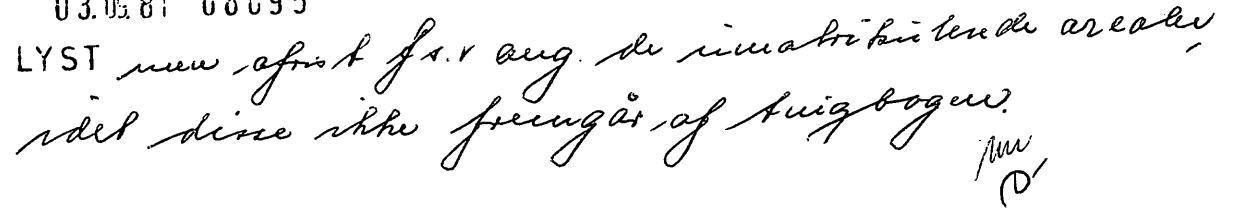 03.05.81 08095
LYST men afvist f.s.v ang. de umatrikulerede arealer,
idet disse ikke fremgår af tingbogen.